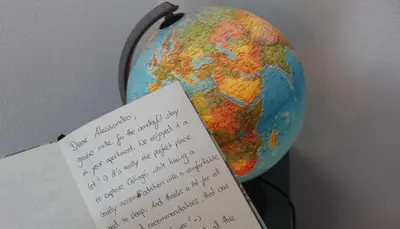 Dear Alessandro,
grazie mille for the wonderful stay
in your apartment. We enjoyed it a
lot! :) It's really the perfect place
to explore Cagliari, while having a
lovely accommodation with a comfortable
bed to sleep. And thanks a lot for all
recommendations, that was
:)
all the